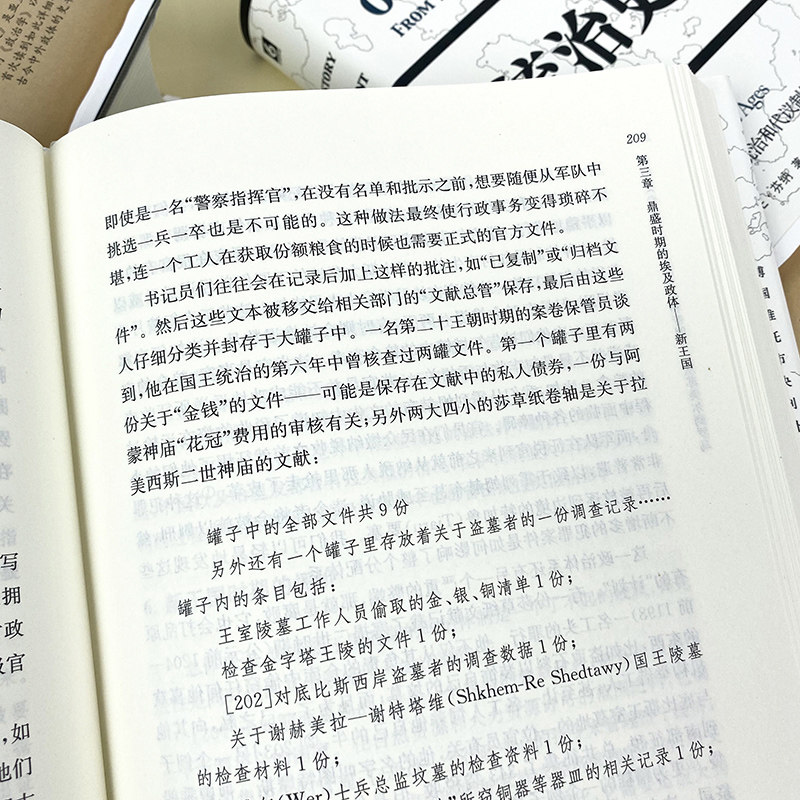 209
第三章 鼎盛时期的埃及政体——新王国
即使是一名“警察指挥官”，在没有名单和批示之前，想要随便从军队中
挑选一兵一卒也是不可能的。这种做法最终使行政事务变得琐碎不
堪，连一个工人在获取份额粮食的时候也需要正式的官方文件。
书记员们往往会在记录后加上这样的批注，如“已复制”或“归档文
件”。然后这些文本被移交给相关部门的“文献总管”保存，最后由这些
人仔细分类并封存于大罐子中。一名第二十王朝时期的案卷保管员谈
到，他在国王统治的第六年中曾核查过两罐文件。第一个罐子里有两
份关于“金钱”的文件——可能是保存在文献中的私人债券，一份与阿
蒙神庙“花冠”费用的审核有关；另外两大四小的莎草纸卷轴是关于拉
美西斯二世神庙的文献：
罐子中的全部文件共9份
另外还有一个罐子里存放着关于盗墓者的一份调查记录……
罐子内的条目包括：
王室陵墓工作人员偷取的金、银、铜清单1份；
检查金字塔王陵的文件1份；
[202]对底比斯西岸盗墓者的调查数据1份；
关于谢赫美拉—谢特塔维(Shkhem-Re Shedtawy)国王陵墓
的检查材料1份；
(War)士兵总监坟墓的检查资料1份；
所窃铜器等器皿的相关记录1份；
写
拥
政
官
，如
他们
FROM
6
STORY
统治史
Ages
统治和代议制
芬纳 著
《政治学》
首次读到如此详细
古今中外政体的史